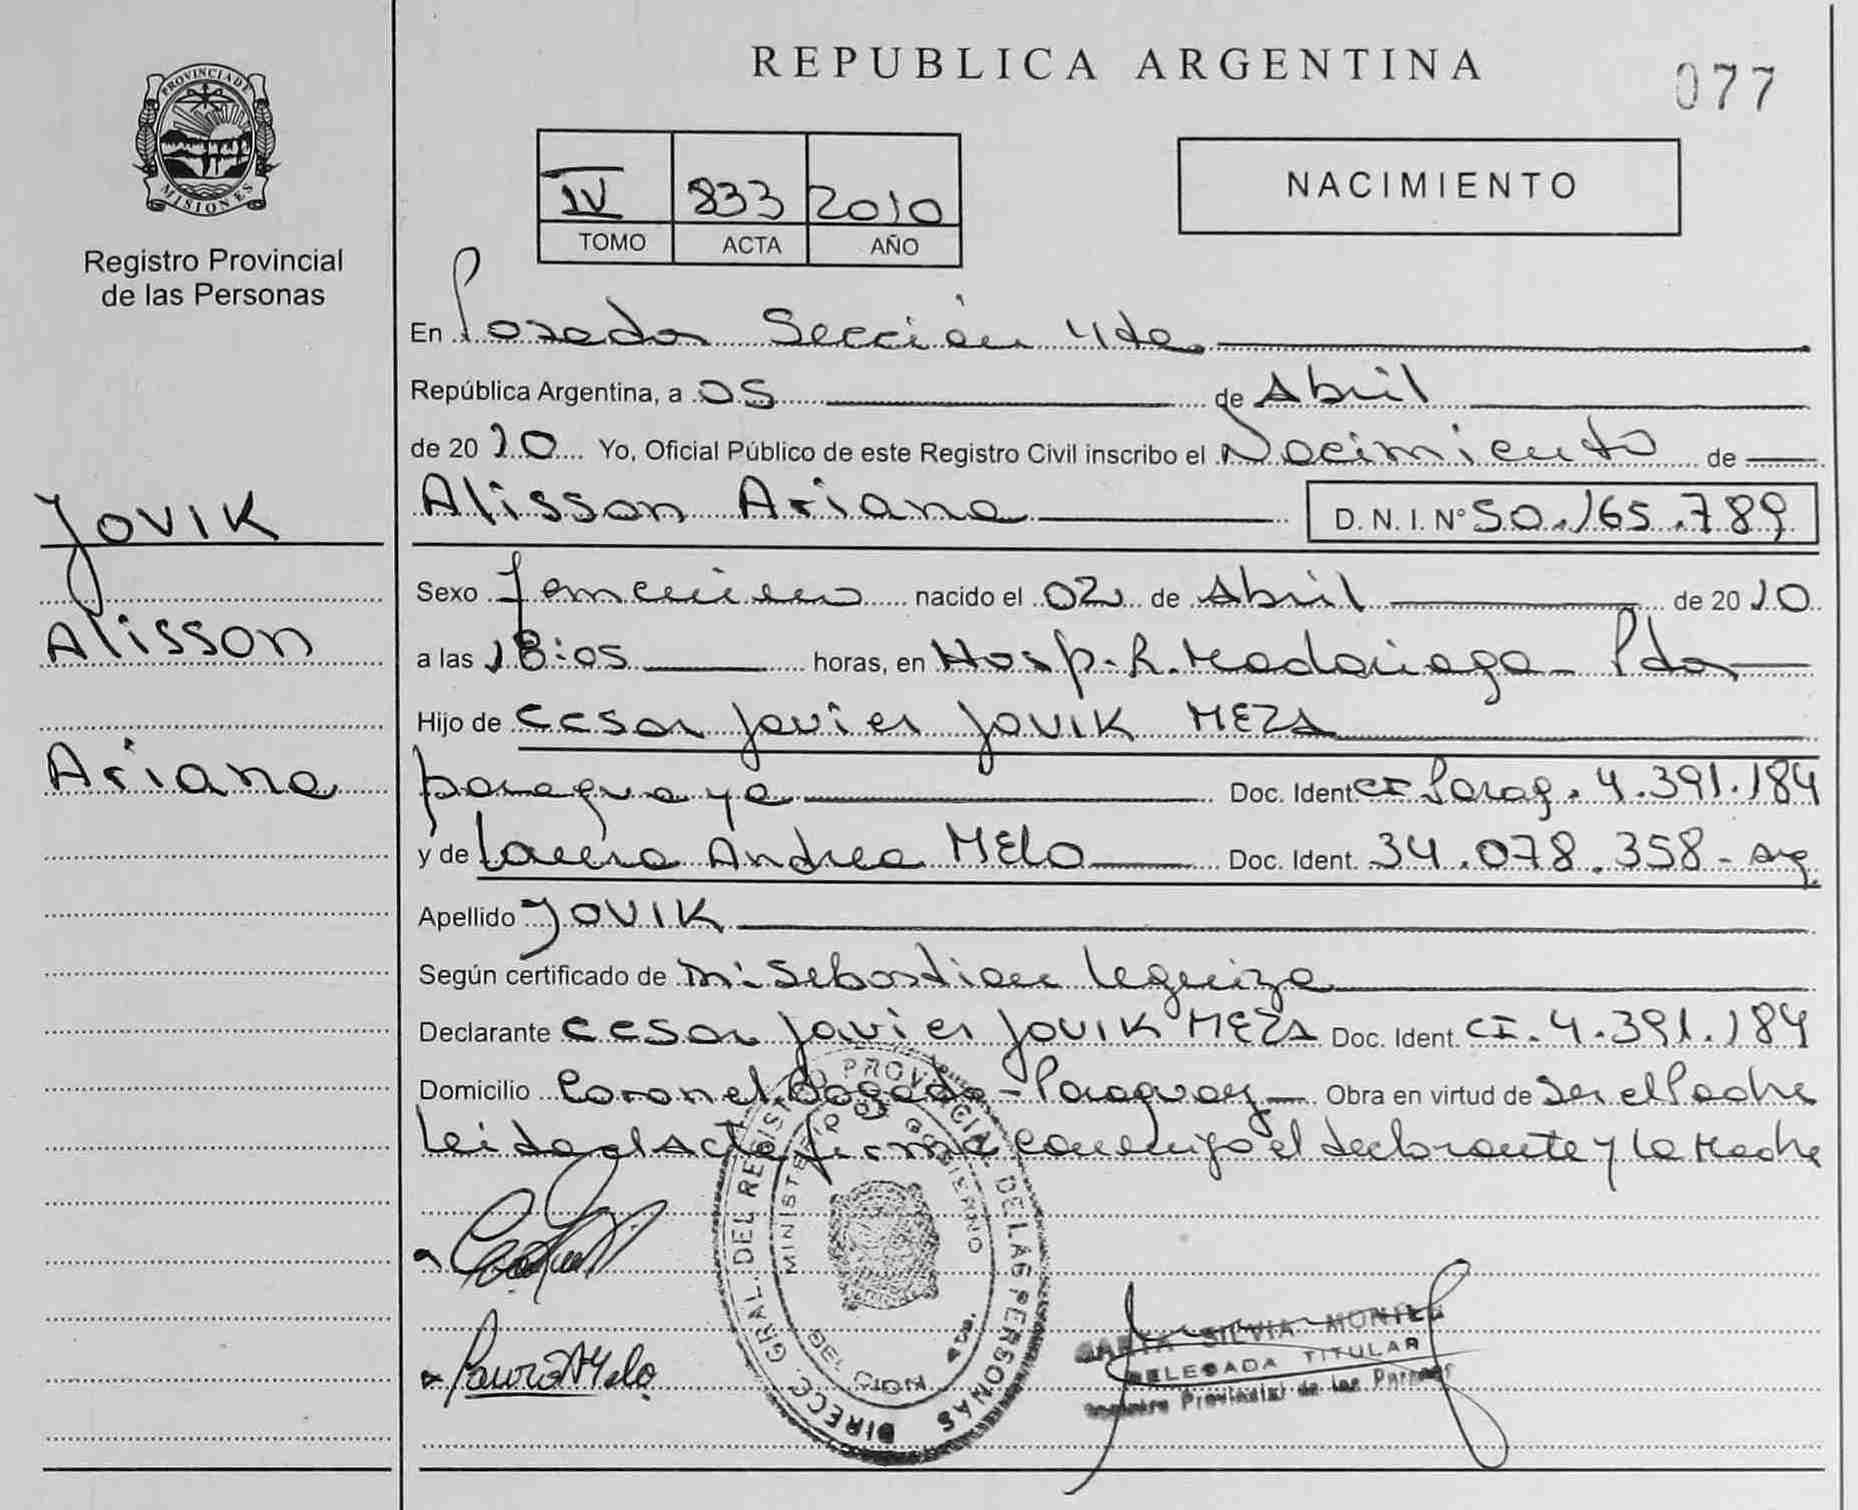 PROVINCIA DE
MISIONES
Registro Provincial
de las Personas
JOVIK
Alisson
Ariana
REPUBLICA ARGENTINA
077
IV 833 2010
TOMO ACTA AÑO
NACIMIENTO
En Posadas Sección 4ta
República Argentina, a 05 de Abril
de 2010 Yo, Oficial Público de este Registro Civil inscribo el Nacimiento de
Alisson Ariana D. N. I. N° 50.165.789
Sexo Femenino nacido el 02 de Abril de 2010
a las 18:05 horas, en Hosp. R. Madariaga - Pdas
Hijo de Cesar Javier JOVIK MEZA
paraguaya Doc. Ident. CI Parag. 4.391.184
y de Laura Andrea MELO Doc. Ident. 34.078.358 - Arg.
Apellido JOVIK
Según certificado de Sebastian
Declarante Cesar Javier JOVIK MEZA Doc. Ident. CI. 4.391.184
Domicilio Coronel Bogado - Paraguay Obra en virtud de ser el Padre
Leida el Acta firma conmigo el declarante y la Madre
DIRECC. GRAL. DEL REGISTRO PROVINCIAL DE LAS PERSONAS
MINISTERIO DE GOBIERNO
Laura Melo
SILVIA
DELEGADA TITULAR
Registro Provincial de las Personas